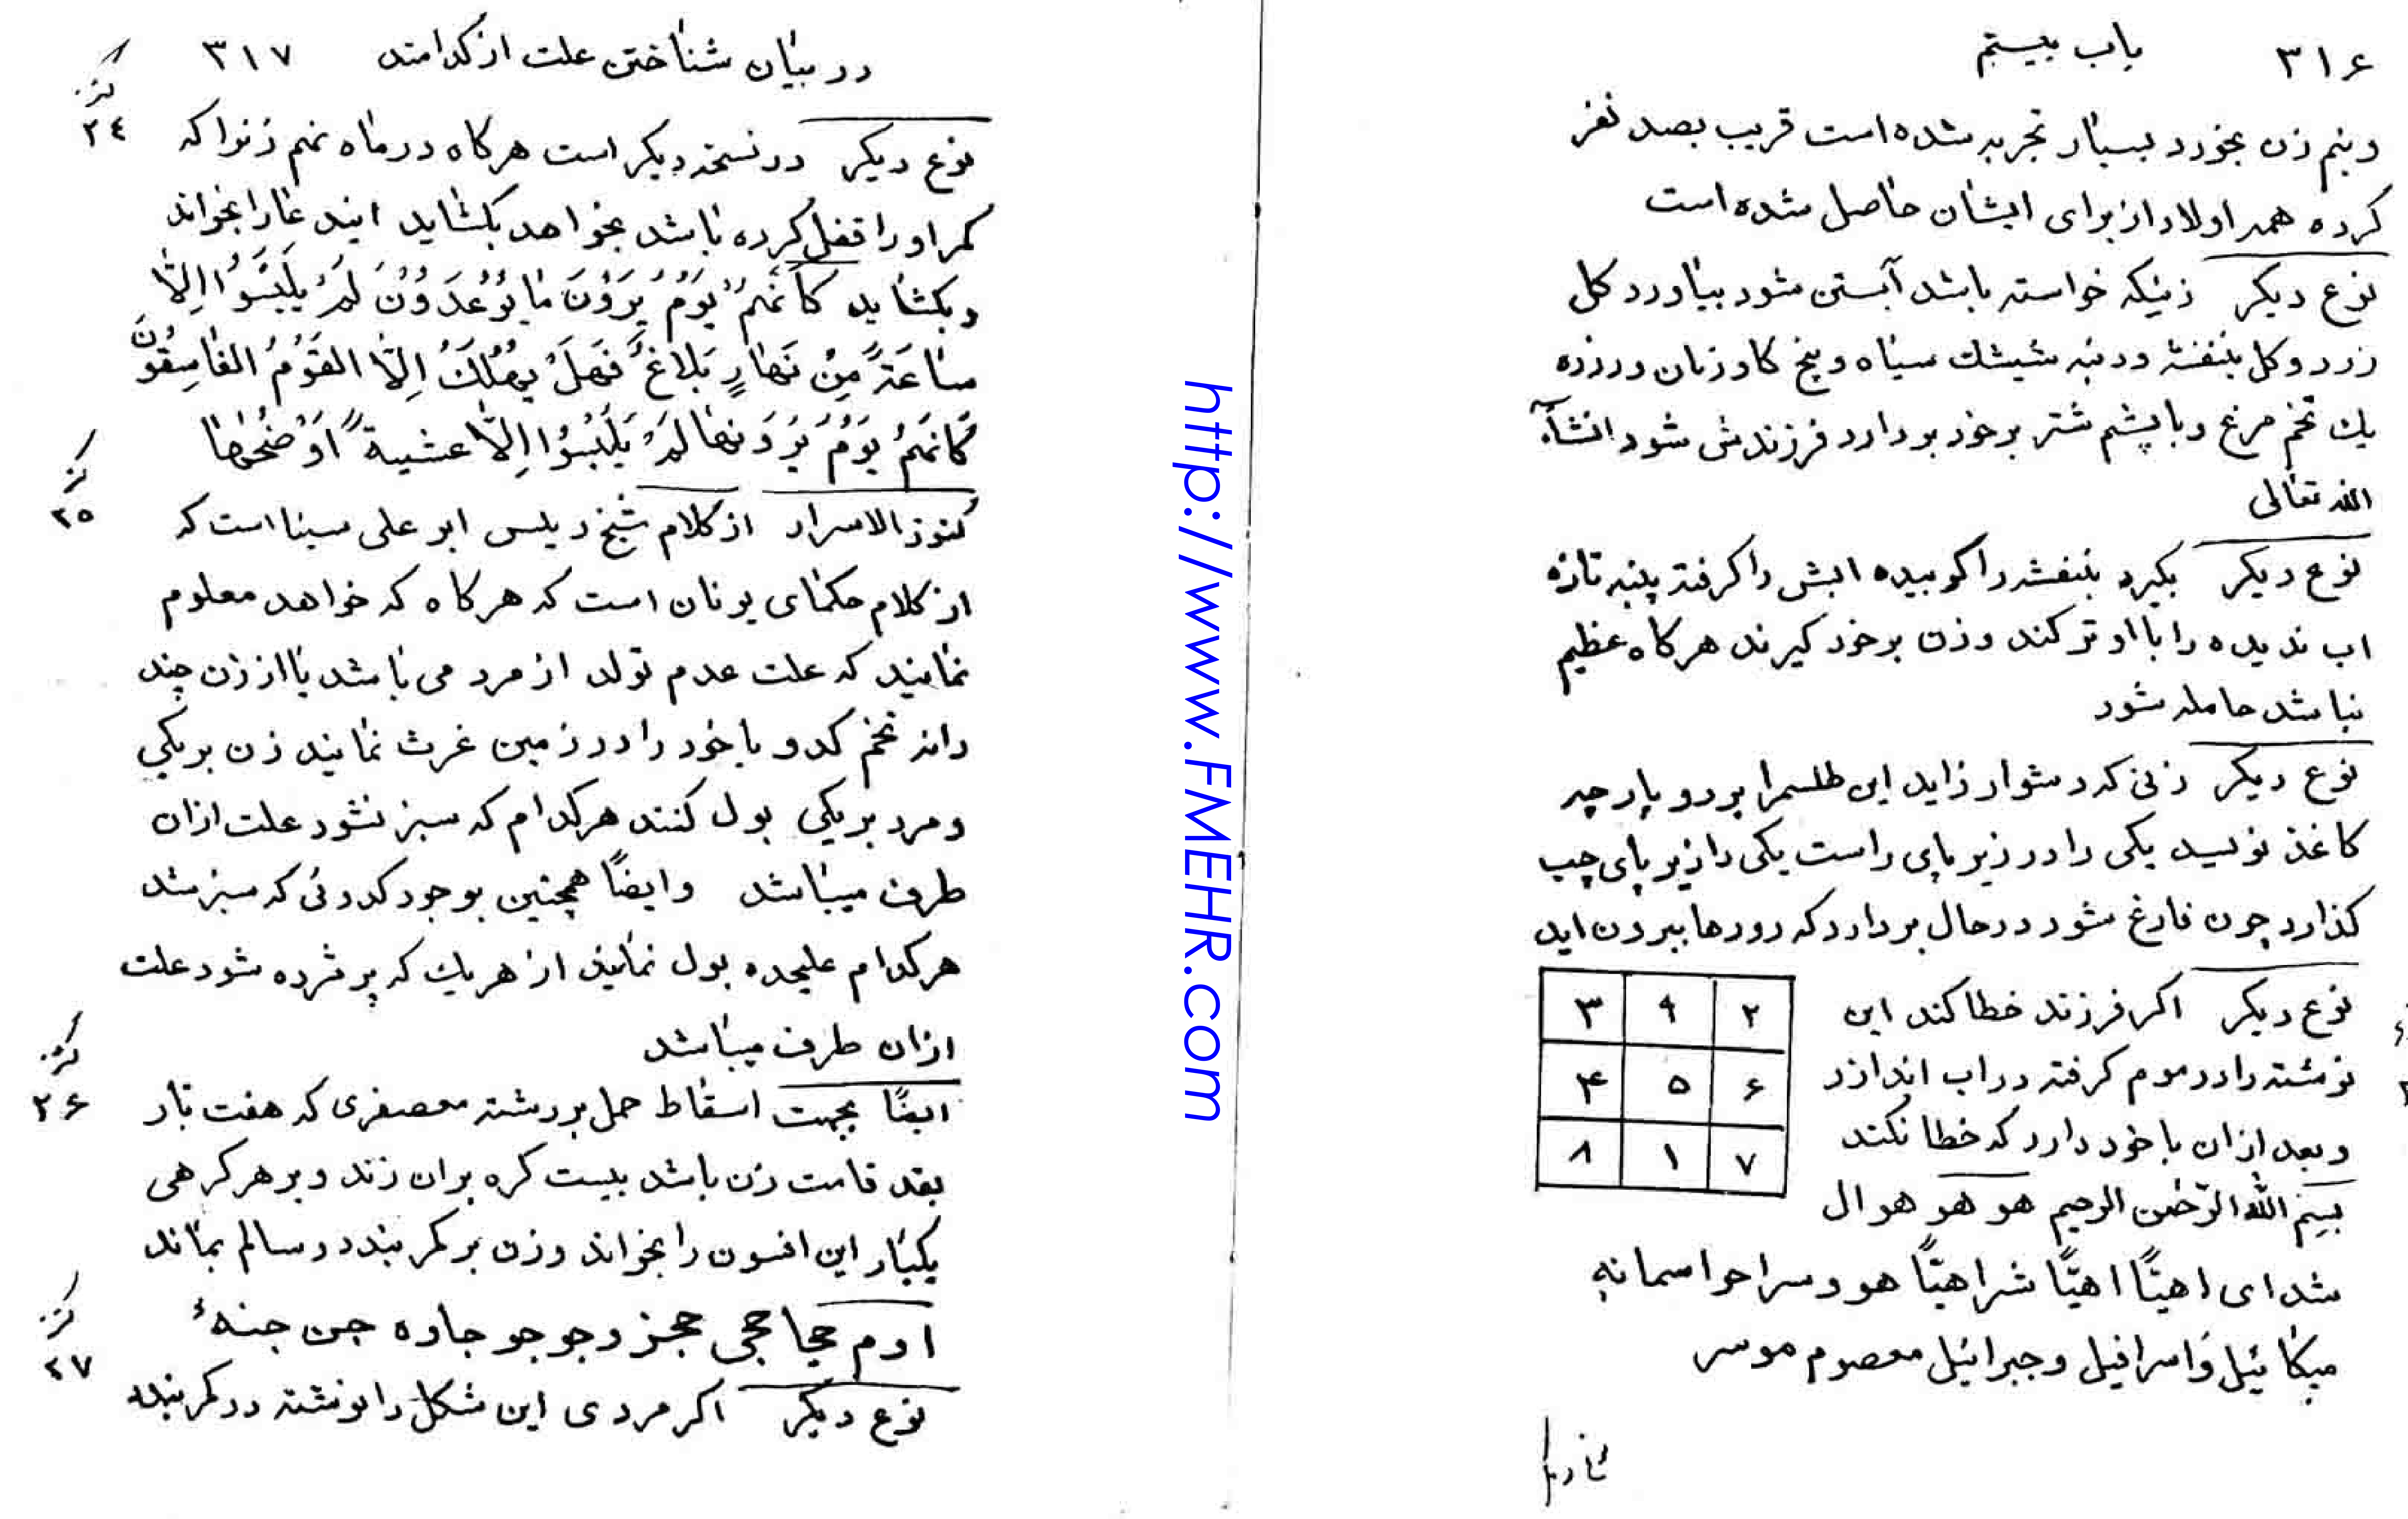 ۳۱۶ باب بیستم
و نیم زن بخورد بسیار تجربه شده است قریب بصد نفر
کرده همه اولاد از برای ایشان حاصل شده است
نوع دیکر زنیکه خواسته باشد آبستن شود بیاورد کل
زرد و کل بنفشه و دنبه شیشك سیاه و بیخ کاوزبان و زرده
یك تخم مرغ و با پشم شتر بر خود بردارد فرزندش شود انشآء
الله تعالی
نوع دیکر بکیرد بنفشه را کوبیده ابش را کرفته پنبه تازه
اب ندیده را با او تر کند و زن بر خود کیرند هر کاه عظیم
نباشد حامله شود
نوع دیکر زنی که دشوار زاید این طلسمرا بر دو پارچه
کاغذ نویسد یکی را در زیر پای راست یکی را زیر پای چپ
کذارد چون فارغ شود در حال بردارد که رودها بیرون اید
نوع دیکر اکر فرزند خطا کند این
نوشته را در موم کرفته در اب اندازد
و بعد ازان با خود دارد که خطا نکند
۲ ۹ ۳
۶ ۵ ۴
۷ ۱ ۸
بسم الله الرحمن الرحیم هو هو هو ال
شدای اهیًّا اهیًّا شراهیًّا هو و سراحوا سمانه
میکائیل و اسرافیل و جبرائیل معصوم موسر
در بیان شناختن علت از کدامند ۳۱۷
نوع دیکر در نسخه دیکر است هر کاه در ماه نهم زنرا که
کمر او را قفل کرده باشد بخواهد بکشاید ایندعا را بخواند
و بکشاید کَاَنَّهُمْ یَوْمَ یَرَوْنَ مَا یُوْعَدُوْنَ لَمْ یَلْبَثُوْا اِلَّا
سَاعَةً مِنْ نَهَارٍ بَلَاغٌ فَهَلْ یُهْلَكُ اِلَّا الْقَوْمُ الْفَاسِقُوْنَ
کَاَنَّهُمْ یَوْمَ یَرَوْنَهَا لَمْ یَلْبَثُوْا اِلَّا عَشِیَّةً اَوْ ضُحٰهَا
کنوز الاسرار از کلام شیخ رئیس ابو علی سینا است که
از کلام حکمای یونان است که هر کاه که خواهد معلوم
نمایند که علت عدم تولد از مرد می باشد یا از زن چند
دانه تخم کدو یا خود را در زمین غرث نمایند زن بر یکی
و مرد بر یکی بول کنند هر کدام که سبز نشود علت ازان
طرف میباشد و ایضًا همچنین بوجود کدوئی که سبز شد
هر کدام علیحده بول نمایند از هر یك که پژمرده شود علت
ازان طرف میباشد
ایضًا بجهت اسقاط حمل بر رشته معصفری که هفت تار
بقد قامت زن باشد بیست کره بران زند و بر هر کرهی
یکبار این افسون را بخواند و زن بر کمر بندد سالم بماند
ادم حجا حجی حجز وجوجو جاده جن جنهٔ
نوع دیکر اکر مردی این شکل را نوشته در کمر بندد
۲۴
۲۵
۲۶
۲۷
http://www.FMEHR.com